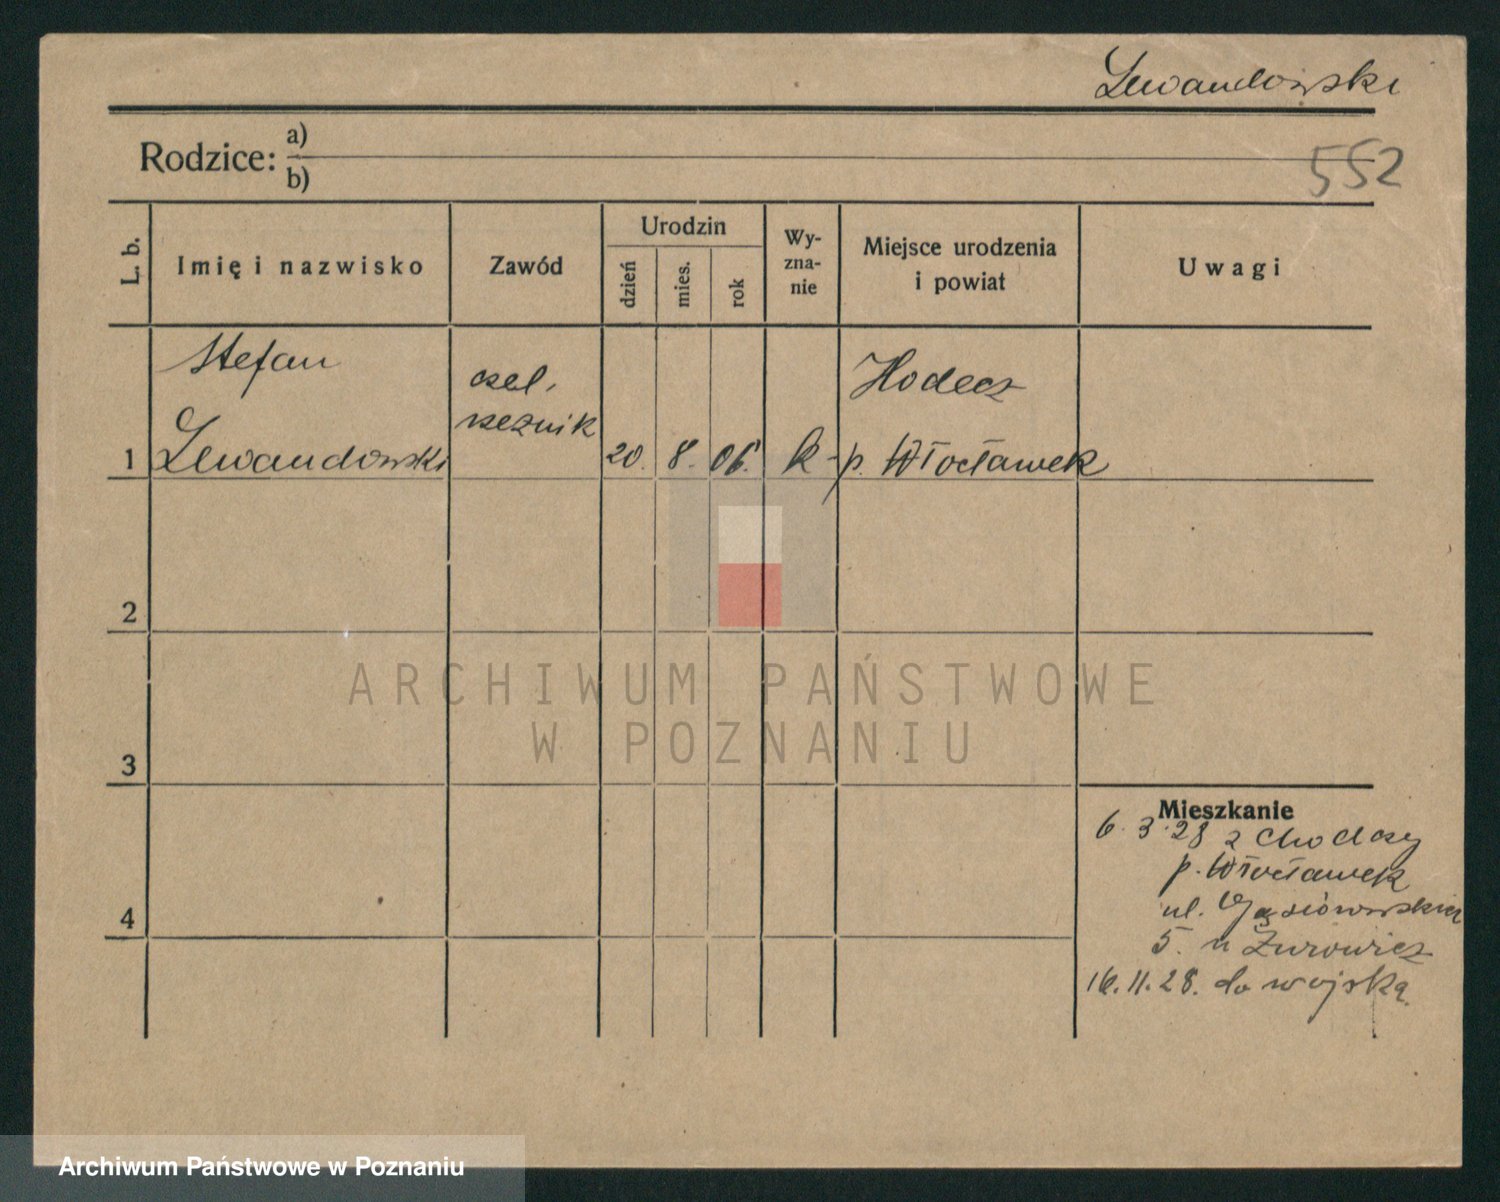 Lewandowski
552
Rodzice: a)
b)
L. b.
Imię i nazwisko
Zawód
Urodzin
dzień
mies.
rok
Wy-
zna-
nie
Miejsce urodzenia
i powiat
Uwagi
1
Stefan
Lewandowski
czel.
rzeznik
20. 8. 06.
k -
Hodecz
p. Włocławek
2
3
4
Mieszkanie
6. 3. 28 z Chodczy
p. Włocławek
ul. Gąsiorowskich
5. u Żurowicz
16. 11. 28. do wojska.
ARCHIWUM PAŃSTWOWE
W POZNANIU
Archiwum Państwowe w Poznaniu